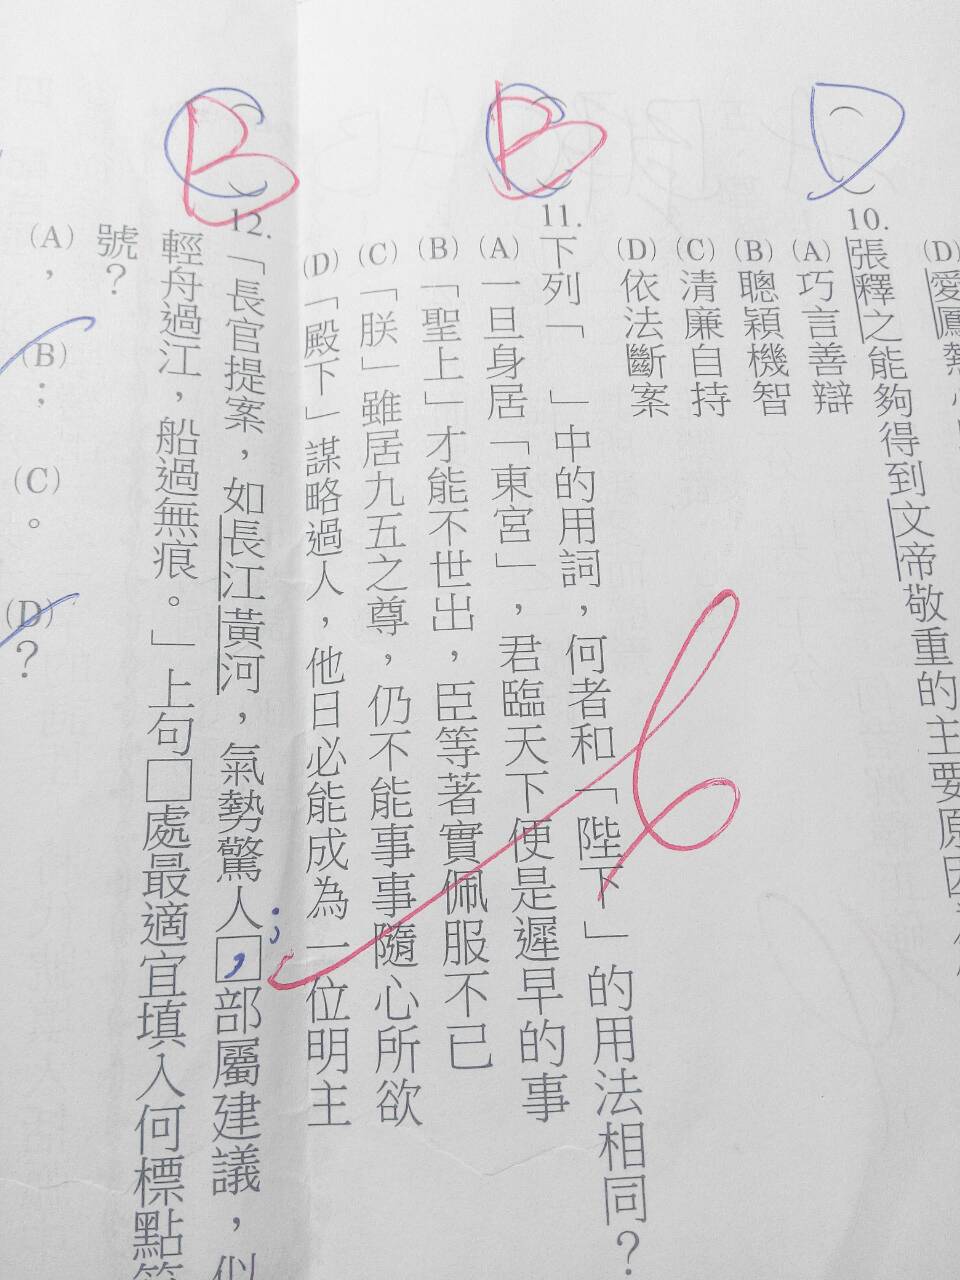 (D)愛屬
D
10.張釋之能夠得到文帝敬重的主要原因
(A)巧言善辯
(B)聰穎機智
(C)清廉自持
(D)依法斷案
B
11.下列「 」中的用詞,何者和「陛下」的用法相同?
(A)一旦身居「東宮」,君臨天下便是遲早的事
(B)「聖上」才能不世出,臣等著實佩服不已
(C)「朕」雖居九五之尊,仍不能事事隨心所欲
(D)「殿下」謀略過人,他日必能成為一位明主
C
B
12.「長官提案,如長江黃河,氣勢驚人□部屬建議,似
;
,
輕舟過江,船過無痕。」上句□處最適宜填入何標點符
號?
(A),
(B);
(C)。
(D)?